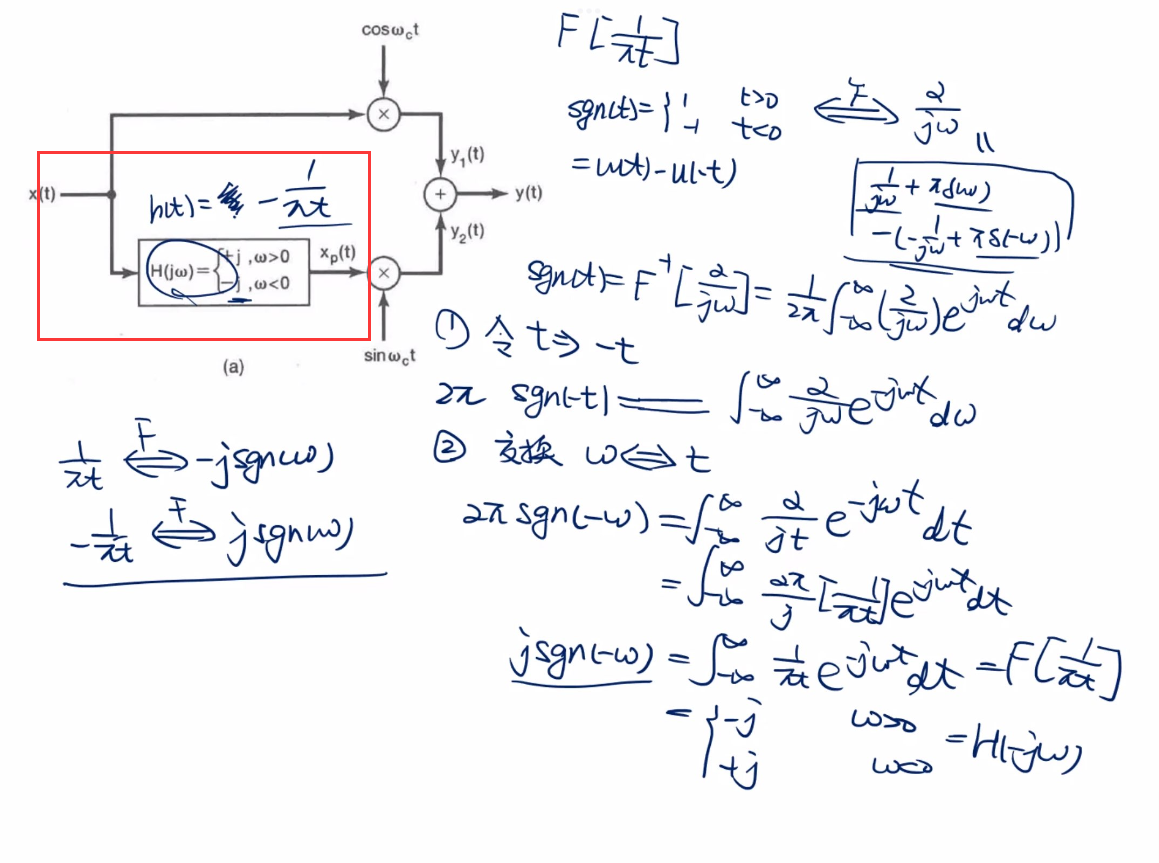 cosω_c t
x(t)
h(t) = - 1/πt
H(jω) = { +j , ω>0
-j , ω<0
x_p(t)
y₁(t)
y(t)
y₂(t)
sinω_c t
(a)
1/πt ⟺ F -jsgn(ω)
- 1/πt ⟺ F jsgn(ω)
F[1/πt]
sgn(t) = { 1 t>0 ⟺ F 2/jω
-1 t<0
= u(t) - u(-t)
1/jω + πδ(ω)
- (- 1/jω + πδ(-ω))
sgn(t) = F⁻¹[2/jω] = 1/2π ∫_{-∞}^{∞} (2/jω) e^{jωt} dω
① 令 t ⇒ -t
2π sgn(-t) = ∫_{-∞}^{∞} 2/jω e^{-jωt} dω
② 交换 ω ⟺ t
2π sgn(-ω) = ∫_{-∞}^{∞} 2/jt e^{-jωt} dt
= ∫_{-∞}^{∞} 2π/j [1/πt] e^{-jωt} dt
jsgn(-ω) = ∫_{-∞}^{∞} 1/πt e^{-jωt} dt = F[1/πt]
= { -j ω>0
+j ω<0 = H(-jω)